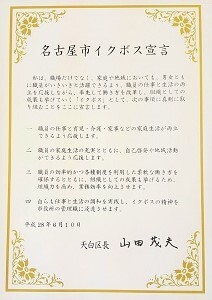 名古屋市イクボス宣言
私は、職場だけでなく、家庭や地域においても、男女とも
に職員がいきいきと活躍できるよう、職員の仕事と生活の両
立を応援しながら、率先して働き方を改革し、組織としての
成果も挙げていく「イクボス」として、次の事項に真剣に取り
組むことをここに宣言します。
一 職員の仕事と育児・介護・家事などの家庭生活が両立
できるよう応援します。
二 職員の家庭生活の充実とともに、自己啓発や地域活動
ができるよう応援します。
三 職員の効率的かつ各種制度を利用した柔軟な働き方を
確保するとともに、組織としての成果も挙げるため、
組織力を高め、業務効率を向上させます。
四 自らも仕事と生活の調和を実践し、イクボスの精神を
市役所の管理職に浸透させます。
平成28年6月10日
天白区長 山田茂夫